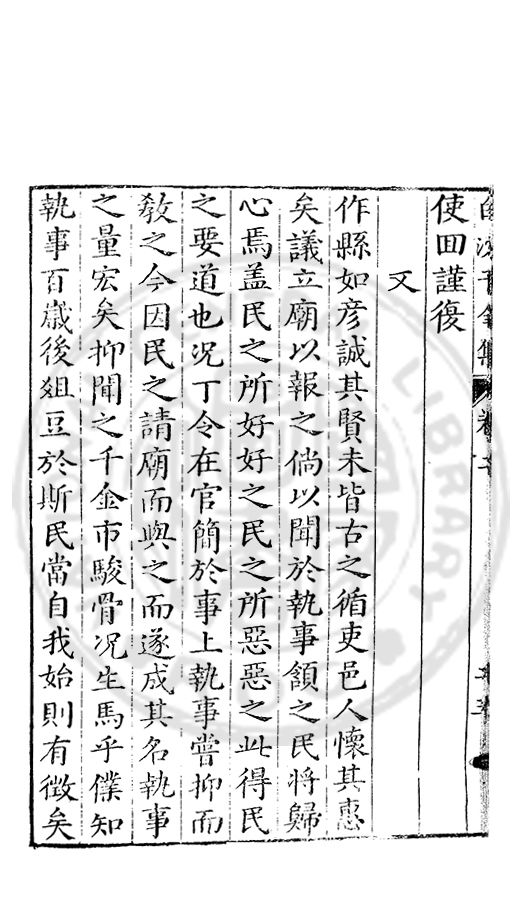 使回謹復
又
作縣如彥誠其賢未皆古之循吏邑人懷其惠
矣議立廟以報之倘以聞於執事頷之民將歸
心焉盖民之所好好之民之所惡惡之此得民
之要道也况丁令在官簡於事上執事嘗抑而
教之今因民之請廟而與之而遂成其名執事
之量宏矣抑聞之千金市駿骨况生馬乎僕知
執事百歲後俎豆於斯民當自我始則有徵矣